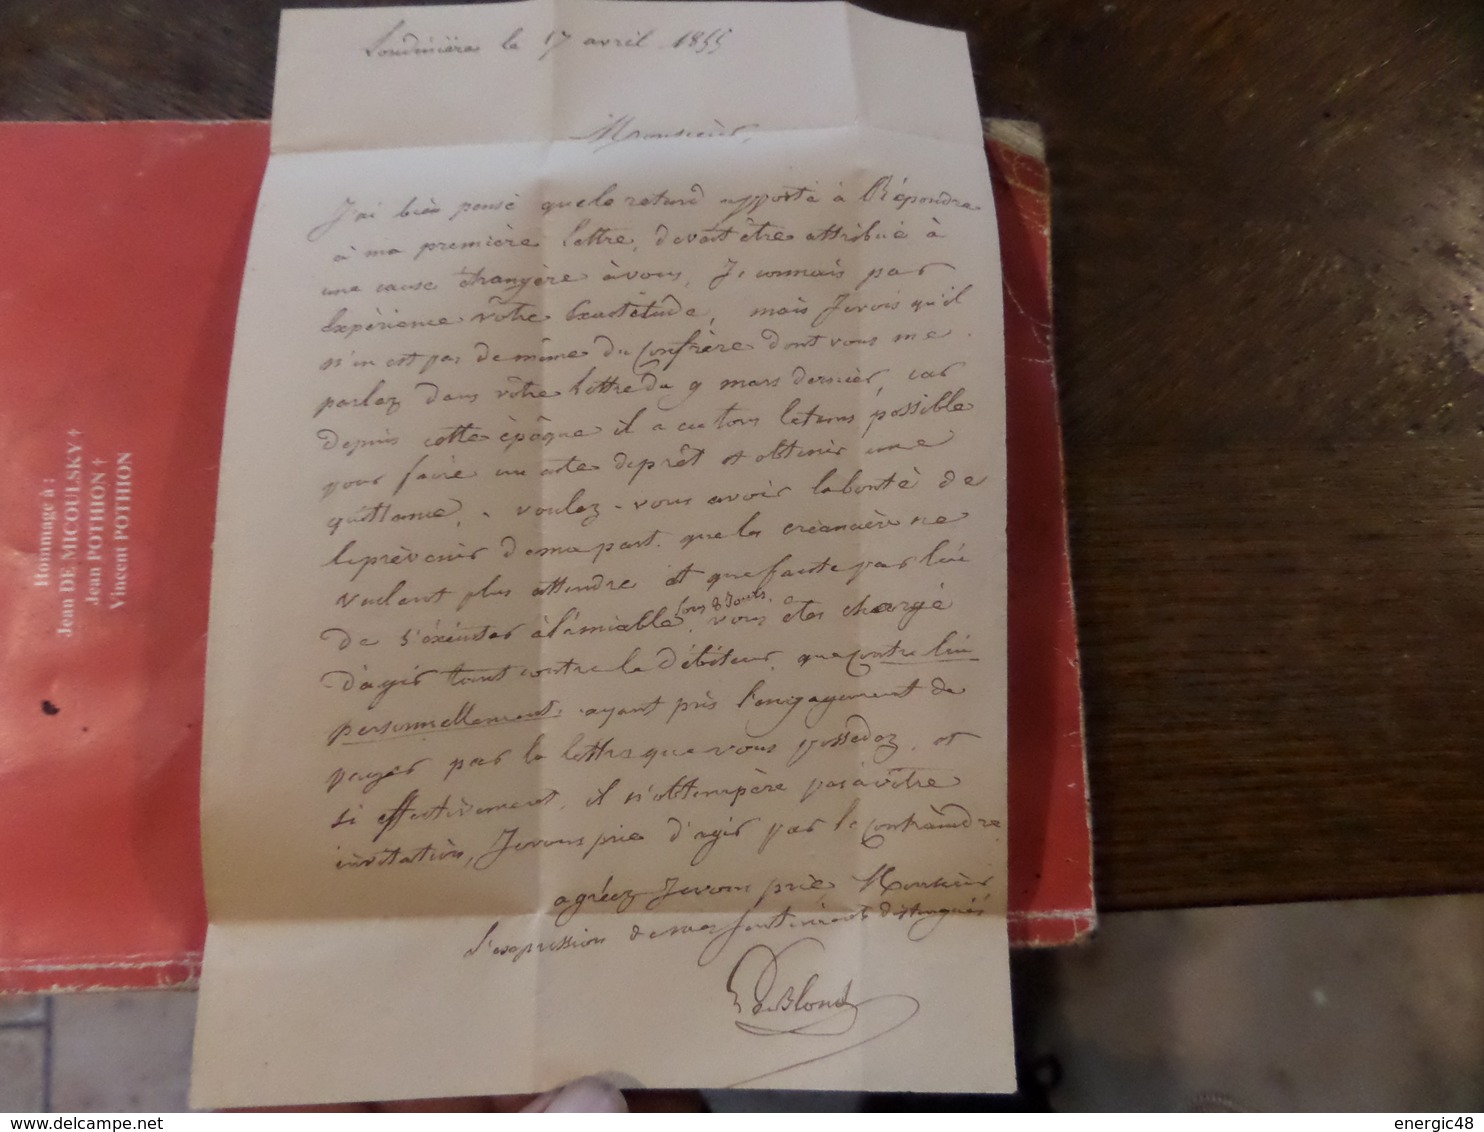 Londinières le 17 avril 1855
Monsieur,
J'ai bien pensé que le retard apporté à Répondre
à ma première lettre, devait être attribué à
une cause étrangère à vous, Je connais par
Expérience votre Exactitude, mais Je vois qu'il
n'en est pas de même du Confrère dont vous me
parlez dans vôtre lettre du 9 mars dernier, car
depuis cette époque il a eu tous le tems possible
pour faire un acte de prêt et obtenir une
quittance. - voulez-vous avoir la bonté de
le prévenir de ma part. que les créanciers ne
veulent plus attendre et que faute par lui
de s'éxécuter à l'amiable, sous 8 Jours, vous êtes chargé
d'agir tant contre le débiteur, que contre lui
personnellement. ayant pris l'engagement de
payer par la lettre que vous possedez, et
si effectivement, il n'obtempère pas à vôtre
invitation, Je vous prie d'agir par le Contraindre
agréez Je vous prie Monsieur
l'expression de mes sentiments distingués
DeBlond
Hommage à :
Jean DE MICOULSKY †
Jean POTHION †
Vincent POTHION
energic48